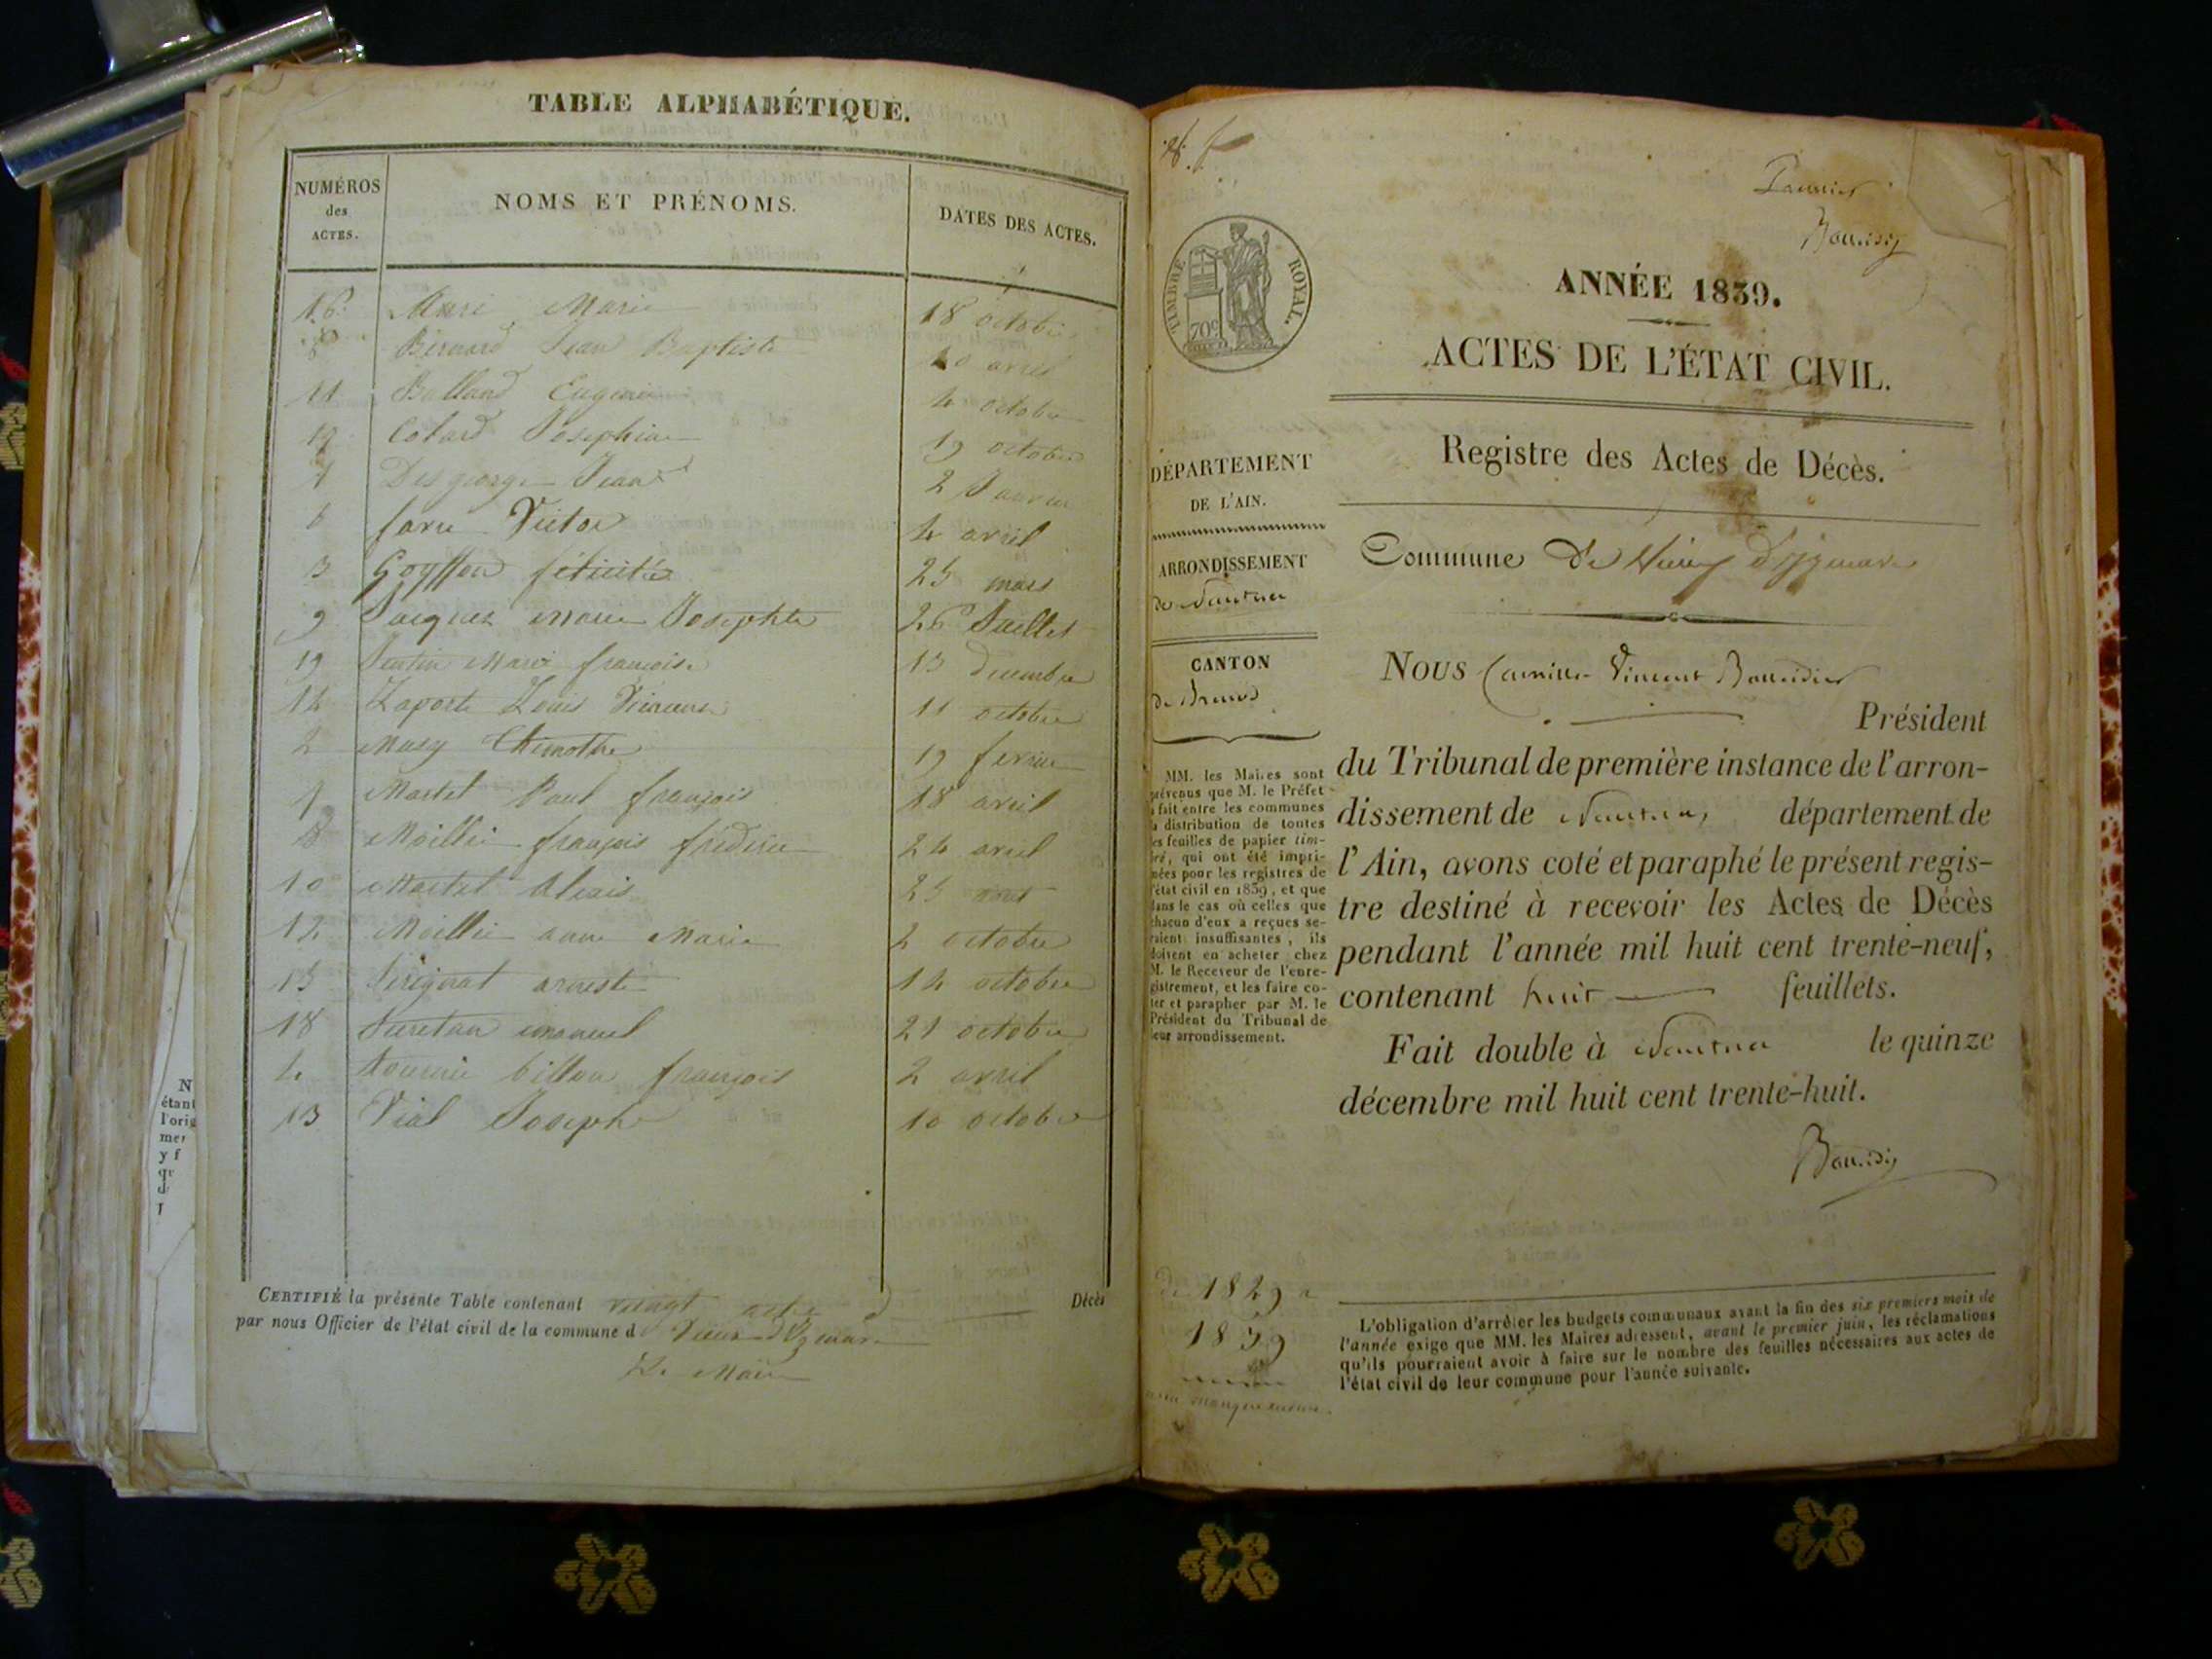 TABLE ALPHABÉTIQUE.
NUMÉROS des ACTES.
NOMS ET PRÉNOMS.
DATES DES ACTES.
16 Marie 18 octobre
8 Bernard Jean Baptiste 20 avril
11 Balland Eugenie 4 octobre
Colard Josephine 19 octobre
1 Desgeorge Jean 2 Janvier
6 favre Victor 4 avril
3 Goyffon félicité 25 mars
9 Jacquez marie Josephte 26 Juillet
19 Marie françoise 13 decembre
14 Laporte Louis 11 octobre
2 Thimothe 19 fevrier
Martel Paul françois 18 avril
françois fréderic 24 avril
10 Martel Alexis 25
12 anne Marie 2 octobre
15 14 octobre
18 21 octobre
4 billon françois 2 avril
13 Vial Joseph 10 octobre
CERTIFIÉ la présente Table contenant vingt actes d Décès
par nous Officier de l'état civil de la commune d Vieux d'Izenave
Le Maire
N
étant
l'orig
mer
y f
TIMBRE ROYAL.
70c
ANNÉE 1839.
ACTES DE L'ÉTAT CIVIL.
Registre des Actes de Décès.
DÉPARTEMENT
DE L'AIN.
ARRONDISSEMENT
de Nantua
CANTON
de Brenod
MM. les Maires sont
prévenus que M. le Préfet
a fait entre les communes
la distribution de toutes
les feuilles de papier tim-
bré, qui ont été impri-
mées pour les registres de
l'état civil en 1839, et que
dans le cas où celles que
chacun d'eux a reçues se-
raient insuffisantes, ils
doivent en acheter chez
M. le Receveur de l'enre-
gistrement, et les faire co-
ter et parapher par M. le
Président du Tribunal de
leur arrondissement.
Commune De Vieux D'Izenave
Nous Camille Vincent
Président
du Tribunal de première instance de l'arron-
dissement de Nantua, département de
l'Ain, avons coté et paraphé le présent regis-
tre destiné à recevoir les Actes de Décès
pendant l'année mil huit cent trente-neuf,
contenant huit feuillets.
Fait double à Nantua le quinze
décembre mil huit cent trente-huit.
de 1829 a
1839
L'obligation d'arrêter les budgets communaux avant la fin des six premiers mois de
l'année exige que MM. les Maires adressent, avant le premier juin, les réclamations
qu'ils pourraient avoir à faire sur le nombre des feuilles nécessaires aux actes de
l'état civil de leur commune pour l'année suivante.